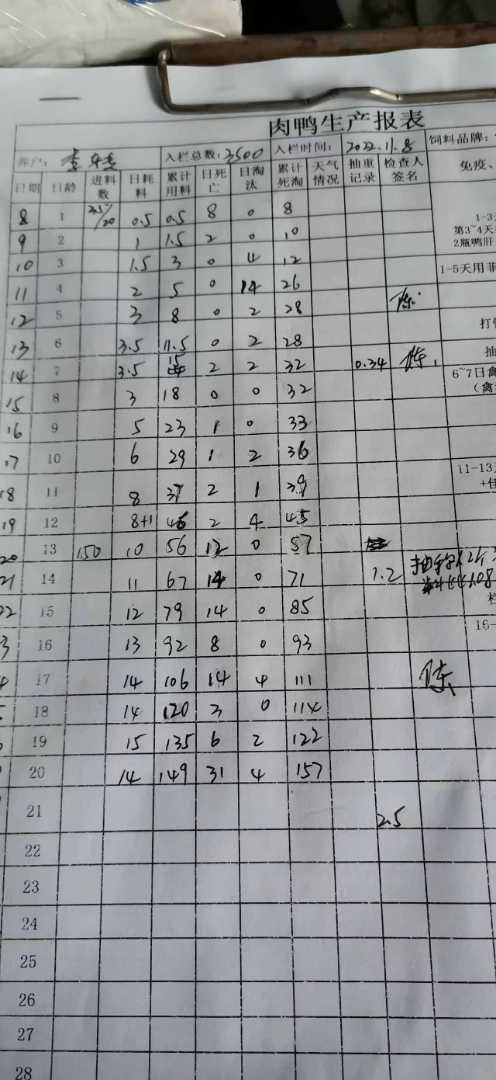 肉鸭生产报表
客户: 入栏总数: 3500 入栏时间: 2022.11.8 饲料品牌:
日期 日龄 进料数 日耗料 累计用料 日死亡 日淘汰 累计死淘 天气情况 抽重记录 检查人签名 免疫、
8 1 0.5 0.5 8 0 8
1-3
9 2 1 1.5 2 0 10 第3~4天
2瓶鸭肝
10 3 1.5 3 0 4 12
11 4 2 5 0 14 26 1-5天用
12 5 3 8 0 2 28 陈
13 6 3.5 11.5 0 2 28 打
14 7 3.5 15 2 2 32 0.34 陈 抽
15 8 3 18 0 0 32 6~7日禽
(禽
16 9 5 23 1 0 33
17 10 6 29 1 2 36
18 11 8 37 2 1 39 11-13
19 12 8+1 46 2 4 45
20 13 150 10 56 12 0 57
21 14 11 67 14 0 71 1.2
22 15 12 79 14 0 85
3 16 13 92 8 0 93 16-
4 17 14 106 14 4 111 陈
18 14 120 3 0 114
19 15 135 6 2 122
20 14 149 31 4 157
21 2.5
22
23
24
25
26
27
28